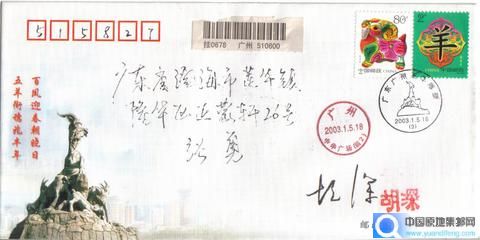 515827
挂0678 广州 510600
80分
中国邮政
2元
羊
中国邮政
广东省澄海市莲华镇
26号
勇
百凤迎春朝晓日
五羊衔穗兆丰年
广州
2003.1.5.18
中华广场(营2)
广东广州
2003.1.5.18
(3)
胡深
邮
中国原地集邮网
www.yuandifeng.com